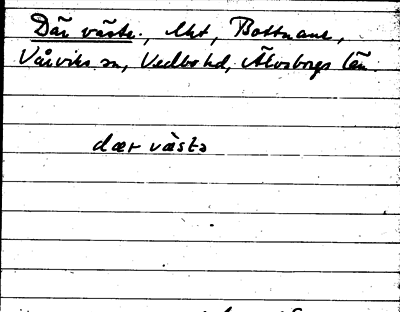 Där väste., Mkt, Bottnane,
Vårviks sn, Vedbo hd, Älvsborgs län.
dær væstə